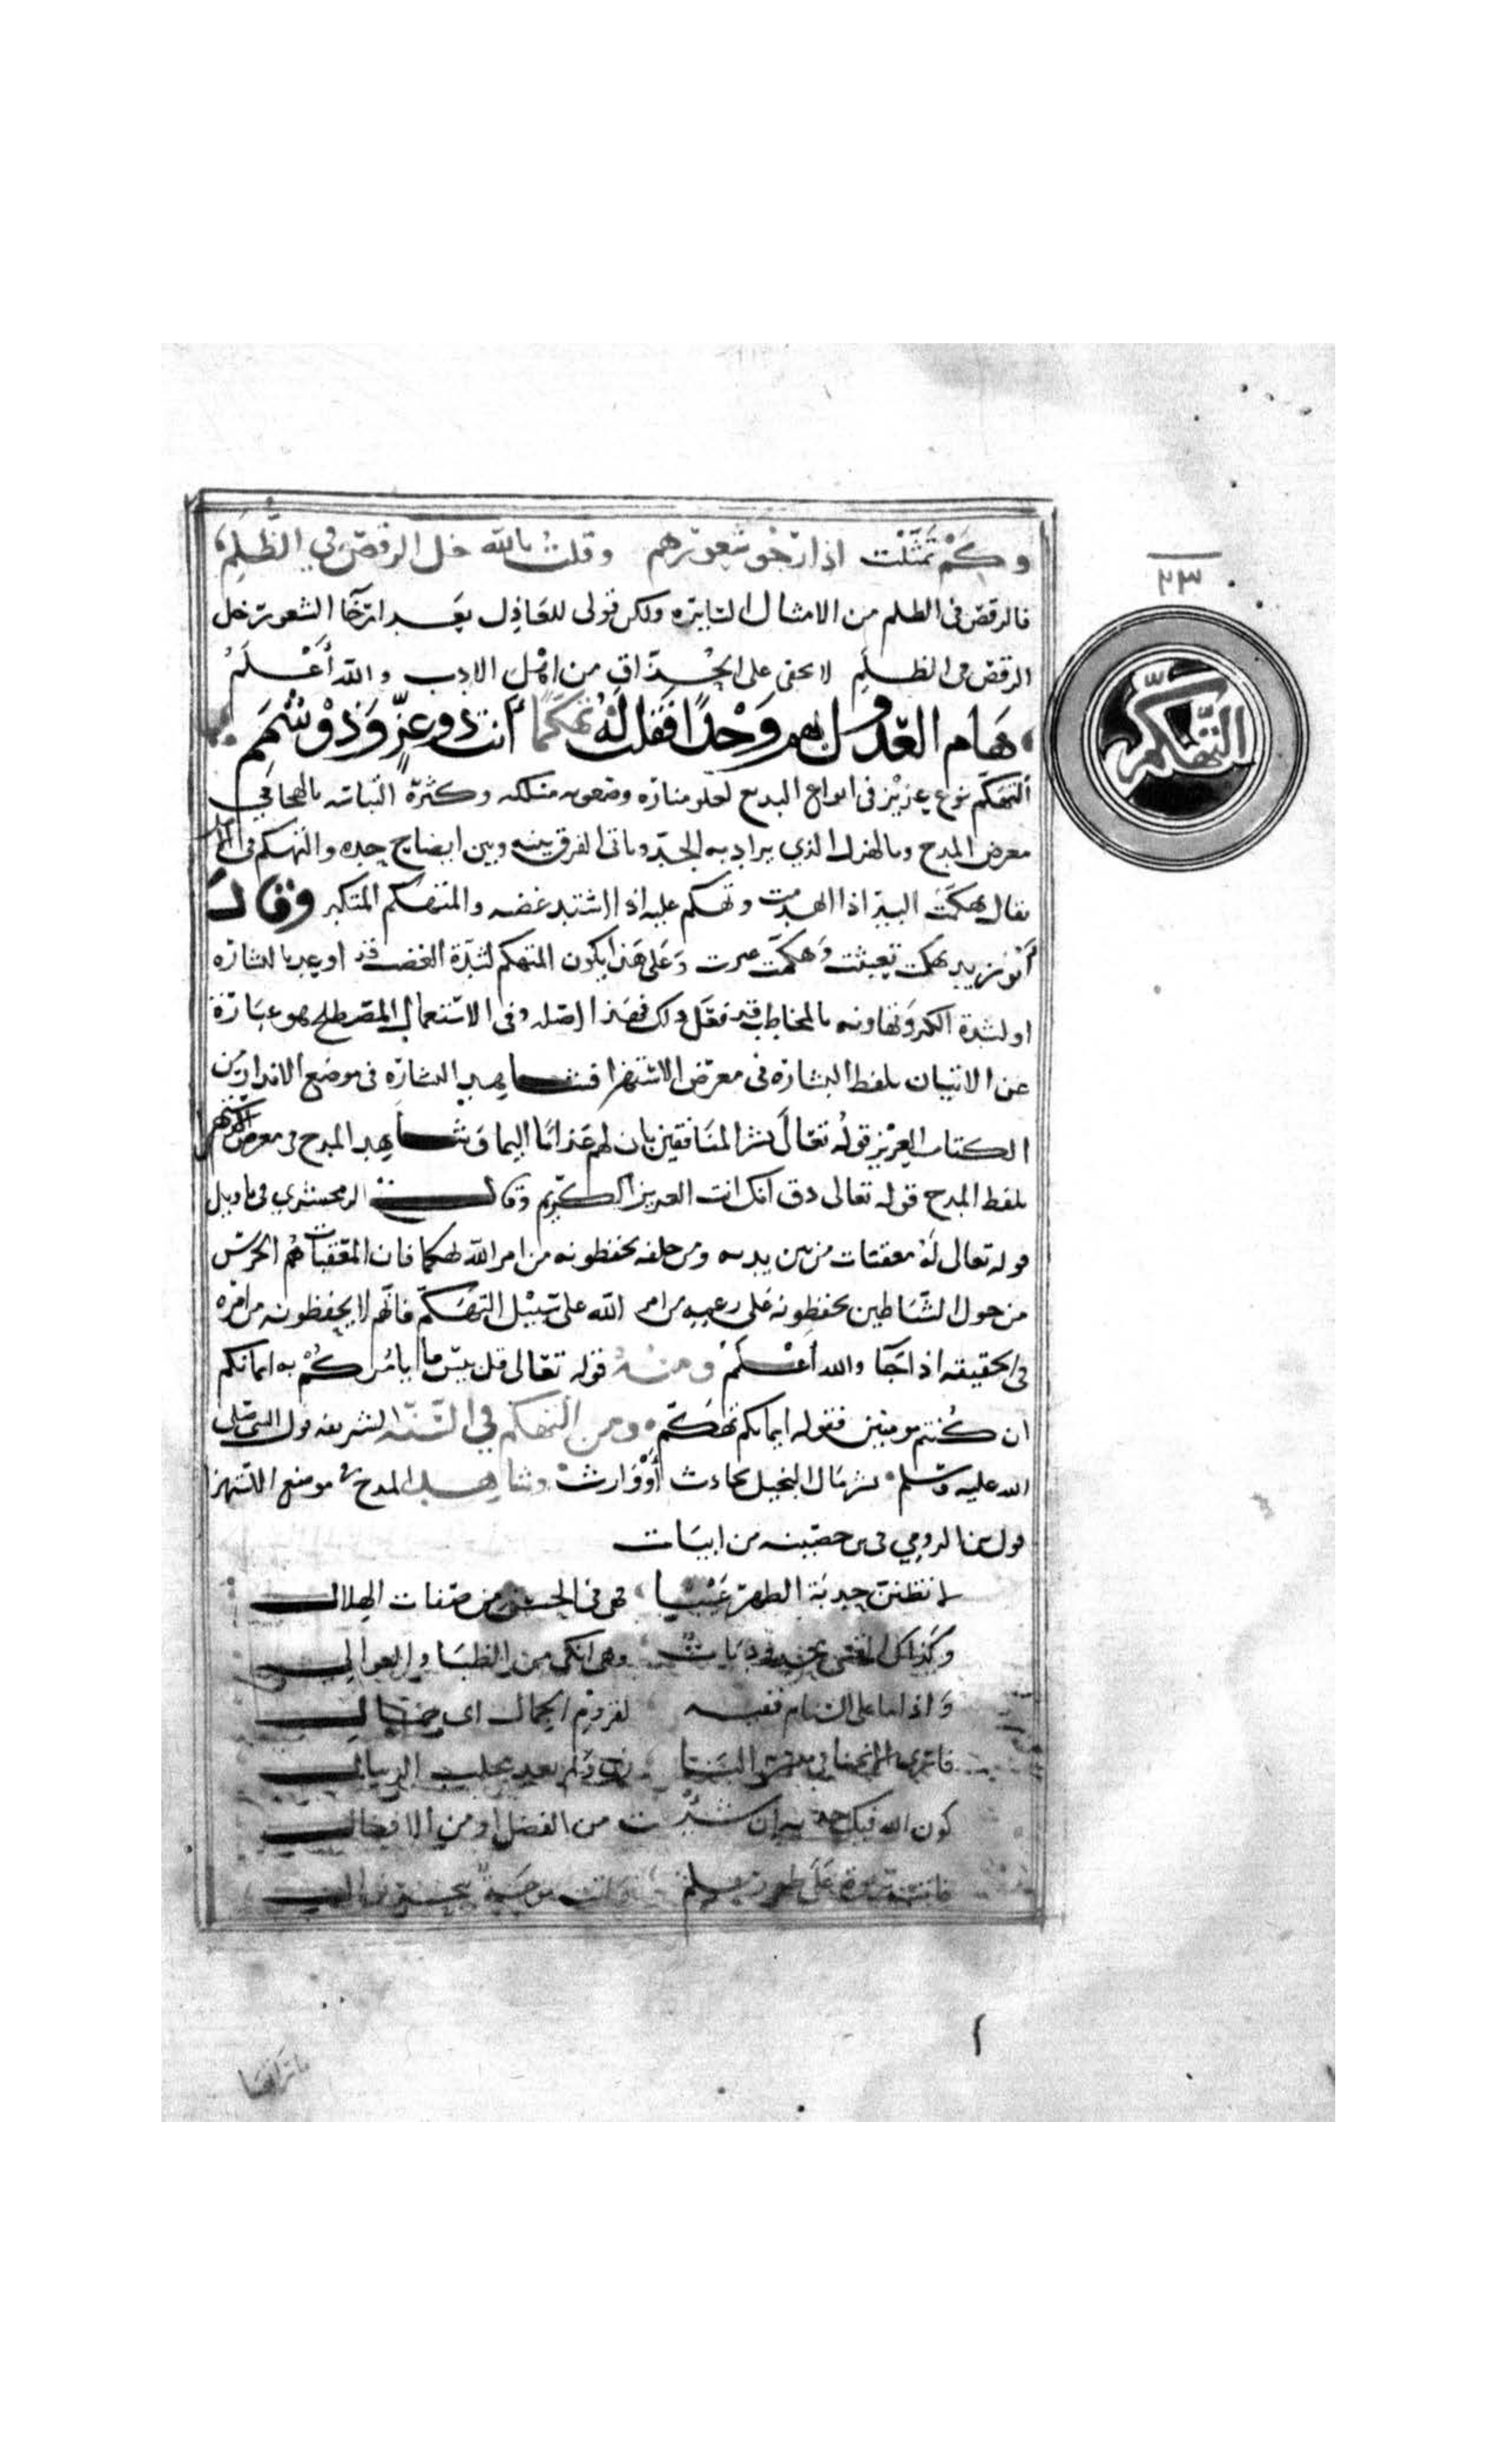 وكم تمثلت اذ ارخو شعورهم وقلت بالله خل الرقص في الظلم
٢٣
فالرقص فى الظلم من الامثال السايره ولكن قولى للعاذل بعد ارخآ الشعور خل
الرقص فى الظلم لا يخفى على الحذاق من اهل الادب والله أعلم
هام العذول بهم وجدًا فقلت له تهكمًا أنت ذو عزٍّ وذو شمم
التهكّم
التهكّم نوع عزيز فى انواع البديع لعلو مناره وصعوبه مسلكه وكثرة التباسه بالهجا في
معرض المدح وبالهزل الذي يراد به الجدّ وياتى الفرق بينه وبين ايضاح حده والتهكم فى
يقال تهكمت البير اذا انهدمت وتهكم عليه اذا اشتد غضبه والمتهكم المتكبر وقال
أبو زيد تهكمت تعبثت وهكمت غيرت وعلى هذا يكون المتهكم لشدّة الغضب قد اوعد بالبشاره
او لشدة الكبر وتهاونه بالمخاطب قد فعل ذلك فهذا اصله وفى الاستعمال المصطلح هو عبارة
عن الاتيان بلفظ البشارة فى معرض الاستهزا فشاهد البشارة فى موضع الانذار من
الكتاب العزيز قوله تعالى بشر المنافقين بان لهم عذابًا اليما وشاهد المدح فى معرض
بلفظ المدح قوله تعالى ذق انك انت العزيز الكريم وقال الزمخشري فى تاويل
قوله تعالى له معقبات من بين يديه ومن خلفه يحفظونه من امر الله تهكما فان المعقبات هم الحرس
من حول السّاطين يحفظونه على زعمه من امر الله على سبيل التهكّم فانهم لا يحفظونه من امره
فى الحقيقه اذا جآ والله أعلم ومنه قوله تعالى قل بيس ما يامركم به ايمانكم
ان كنتم مومنين فقوله ايمانكم تهكّم ومن التهكم في السّنّه الشريفه قول النبى صلى
الله عليه وسلم بشر مال البخيل بحادث أو وارث وشاهد المدح فى موضع الاستهزا
قول بن الرومي فى بن حصينه من ابيات
لا تظنن حدبة الظهر عيبا فهى فى الحسن من صفات الهلال
وكذاك القسي محدودبات وهى انكى من الظبا والعوالي
واذا ما على السنام ففيه لقروم الجمال اى جمال
كون الله فيك حدبة ان شئت من الفضل او من الافضال
ما تراها